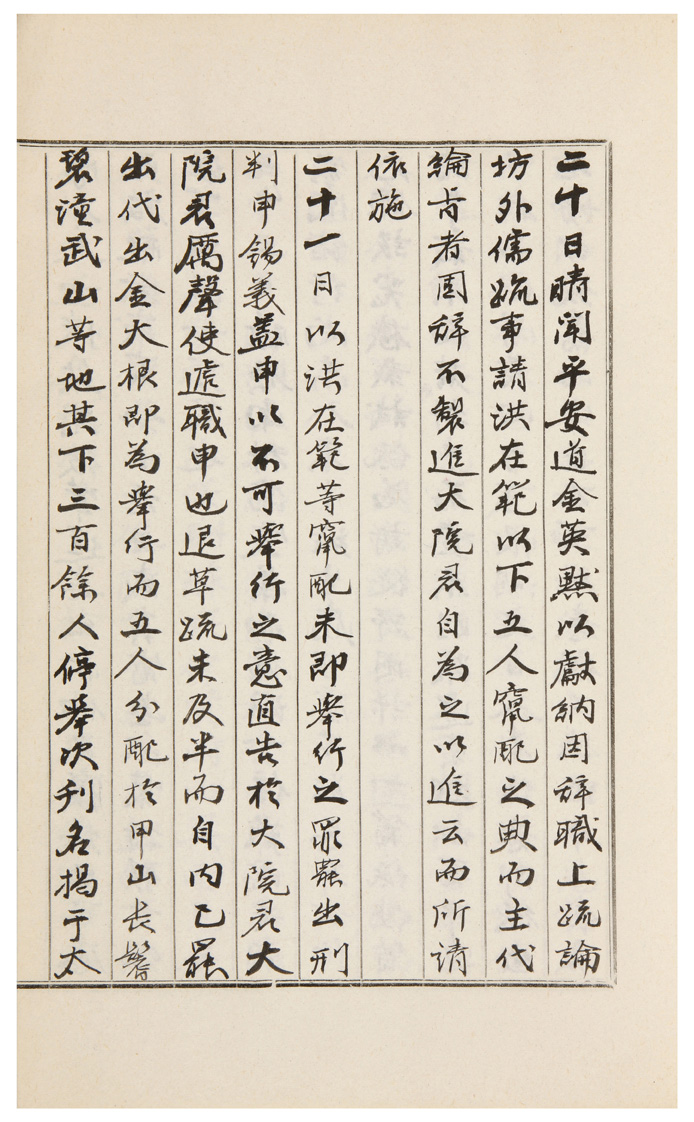 二十日晴聞平安道金英默以獻納因辞職上疏論
坊外儒疏事請洪在範以下五人竄配之典而主代
綸者固辞不製進大院君自為之以進云而所請
依施
二十一日以洪在範等竄配未即舉行之罪罷出刑
判申錫羲盖申以不可舉行之意直告於大院君大
院君厲聲使遞職申也退草疏未及半而自内已罷
出代出金大根即為舉行而五人分配於甲山長鬐
碧潼武山等地其下三百餘人停舉次刊名揭于太